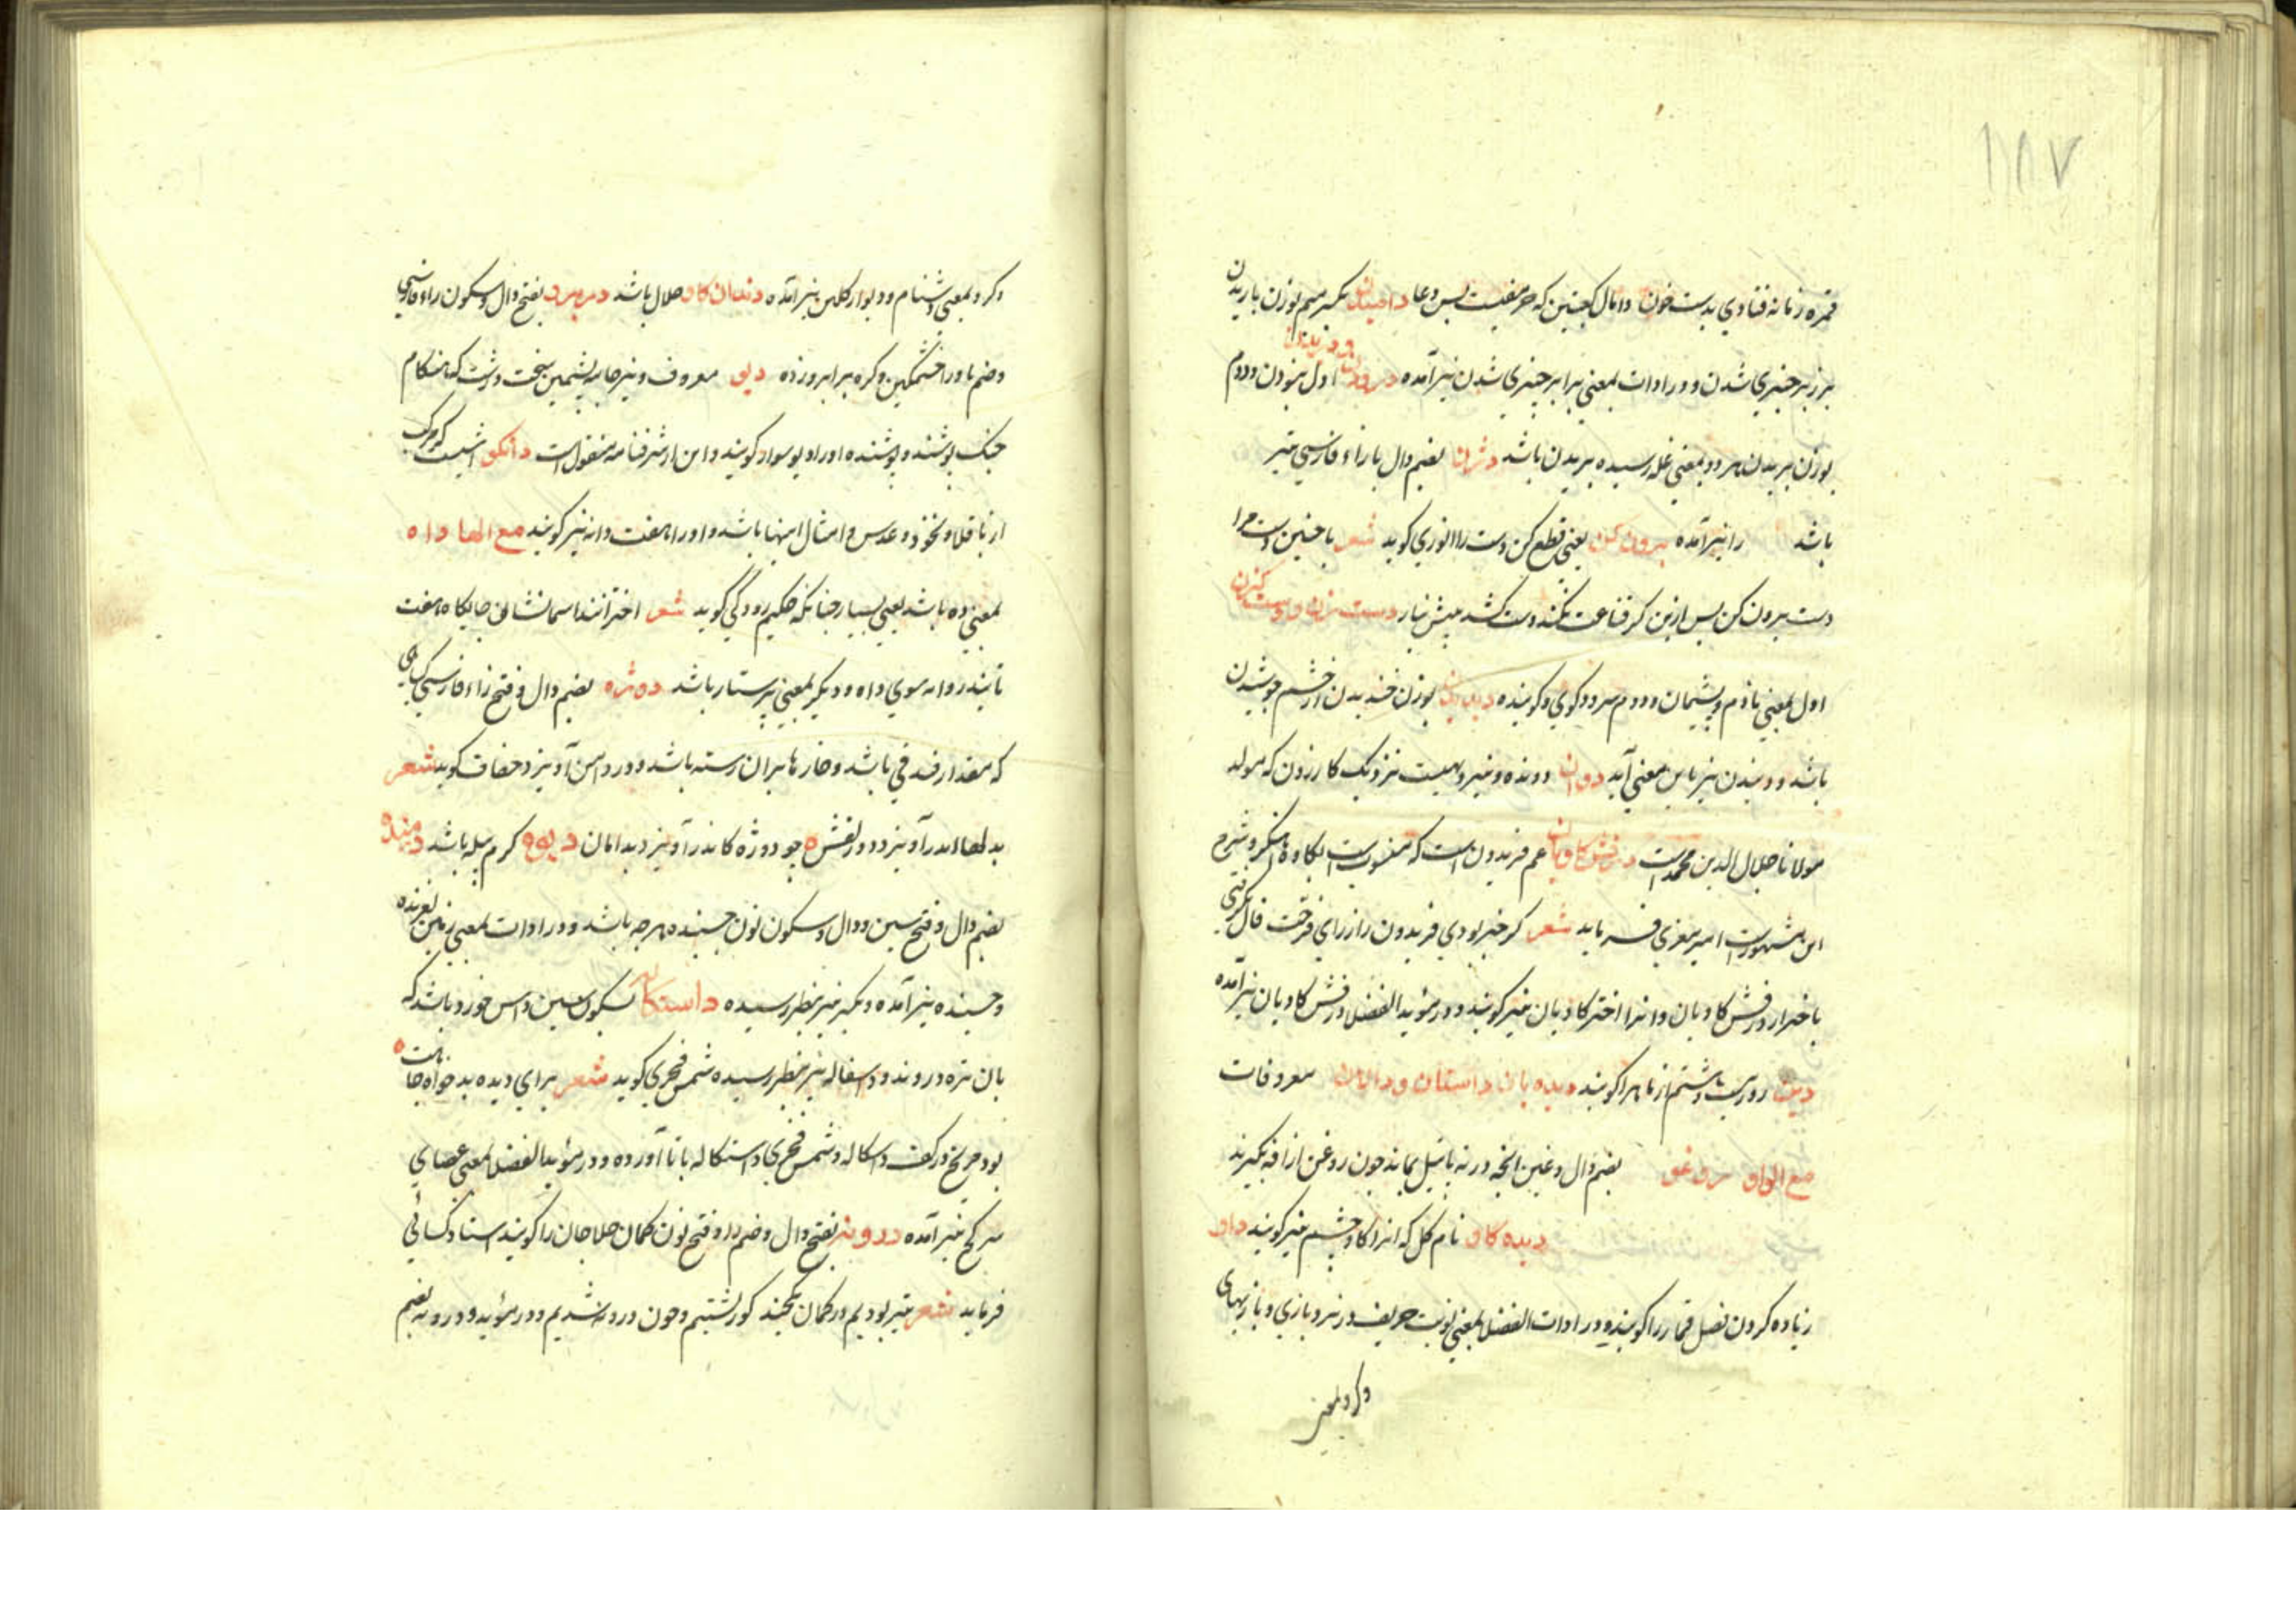 ۱۸۷
قمره زمانه فتادی بدست خون وامال کعبتین که حریفیست بس دغا دامیدن بکسر میم بوزن باریدن
بر زبر چیزی شدن و در ادات بمعنی برابر چیزی شدن نیز آمده درودن و دریدن اول بنودن و دوم
بوزن بریدن هر دو بمعنی غله رسیده بریدن باشد دژان بضم دال با زاء فارسی تیر
باشد را نیز آمده بیرون کن یعنی قطع کن دست را انوری گوید شعر با چنین دست مرا
دست بیرون کن پس ازین کر قناعت نکند دست کشد پیش نیاز
اول بمعنی نادم و پشیمان و دوم سرودکوی و کوینده بوزن خندیدن از خشم جوشیدن
باشد و دیندن نیز باین معنی آید دوان دونده و نیز دهیست نزدیک کازرون که مولد
مولانا جلال الدین محمد است درفش کاویان علم فریدون است که منسوبست بکاوه اهنگر و شرح
این مشهورست امیر معزی فرماید شعر کر خبر بودی فریدون را ز رای فرخت فال نگرفتی
باختر از درفش کاویان و انرا اختر کاویان نیز کویند و در مؤید الفضلا درفش کاویان نیز آمده
دین روز بیست و هشتم از ماه را کویند دیده بان داستان و دالان معروفات
مع الواو بضم دال و غین انچه در ته باتیل بماند چون روغن ازافه بکیرند
دیده کاو نام کل که انرا کاو چشم نیز کویند داو
زیاده کردن خصل قمار را کویند و در ادات الفضلا بمعنی نوبت حریف در نرد و بازی و بازیهای
وکرو بمعنی
وکرو بمعنی دشنام و دیوار کلین نیز آمده دندان کاو خلال باشد بفتح دال و سکون راء فارسی
و ضم با و را خشمکین و کره بر ابرو زده دیو معروف و نیز جامه پشمین سخت درشت که هنکام
جنک پوشند و پوشنده اورا دیو سوار کویند و این از شرفنامه منقول است دانکو اشیست که مرکب
از باقلا و نخود و عدس و امثال اینها باشد و اورا هفت دانه نیز کویند مع الها داه
بمعنی ده باشد یعنی بسیار چنانکه حکیم رودکی کوید شعر اخترانند اسمانشان جایکاه هفت
تابنده روانه سوی داه و دیکر بمعنی پرستار باشد دوژه بضم دال و فتح زاء فارسی کیاهی
که مقدار فندقی باشد و خارها بران رسته باشد و در دامن آویزد خفاف کوید شعر
بد اندر آویزد و در لغش چو دوژه کاندر آویزد بدامان دیوه کرم پیله باشد
بضم دال و فتح سین و دال و سکون نون چسبنده هرچه باشد و در ادات بمعنی زمین لغزنده
و چسبنده نیز آمده و بکسر نیز بنظر رسیده داستکاله بسکون سین داس خورد باشد که
بان تره دروند و داسغاله نیز بنظر رسیده شمس فخری کوید شعر برای دیده بدخواه جاهت
بود مریخ در کف داسکاله و شمس فخری داستکاله با تا آورده و در مؤید الفضلا بمعنی عصای
سر کج نیز آمده درونه بفتح دال و ضم را و فتح نون کمان حلاجان را کویند استاد کسائی
فرماید شعر تیر بودیم در کمان یکچند کوز کشتیم و چون درونه شدیم و در مؤید و درونه بضم